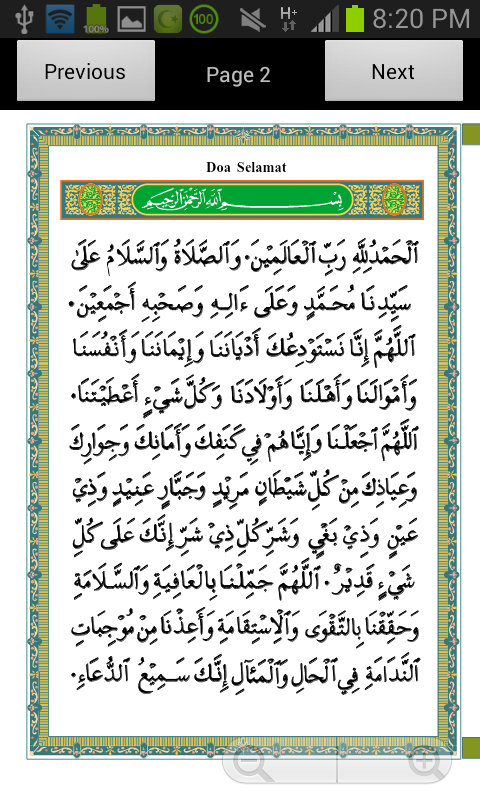 100%
100
H+
8:20 PM
Previous
Page 2
Next
Doa Selamat
بِسْمِ اللَّهِ الرَّحْمَٰنِ الرَّحِيمِ
اَلْحَمْدُلِلَّهِ رَبِّ الْعَالَمِيْنَ. وَالصَّلَاةُ وَالسَّلَامُ عَلَىٰ
سَيِّدِنَا مُحَمَّدٍ وَعَلَى ءَالِهِ وَصَحْبِهِ أَجْمَعِيْنَ.
اَللَّهُمَّ إِنَّا نَسْتَوْدِعُكَ أَدْيَانَنَا وَإِيْمَانَنَا وَأَنْفُسَنَا
وَأَمْوَالَنَا وَأَهْلَنَا وَأَوْلَادَنَا وَكُلَّ شَيْءٍ أَعْطَيْتَنَا.
اَللَّهُمَّ اجْعَلْنَا وَإِيَّاهُمْ فِي كَنَفِكَ وَأَمَانِكَ وَجِوَارِكَ
وَعِيَاذِكَ مِنْ كُلِّ شَيْطَانٍ مَرِيْدٍ وَجَبَّارٍ عَنِيْدٍ وَذِيْ
عَيْنٍ وَذِيْ بَغْيٍ وَشَرِّ كُلِّ ذِيْ شَرٍّ إِنَّكَ عَلَى كُلِّ
شَيْءٍ قَدِيْرٌ. اَللَّهُمَّ جَمِّلْنَا بِالْعَافِيَةِ وَالسَّلَامَةِ
وَحَقِّقْنَا بِالتَّقْوَى وَالْاِسْتِقَامَةِ وَأَعِذْنَا مِنْ مُوْجِبَاتِ
النَّدَامَةِ فِي الْحَالِ وَالْمَئَآلِ إِنَّكَ سَمِيْعُ الدُّعَاءِ.